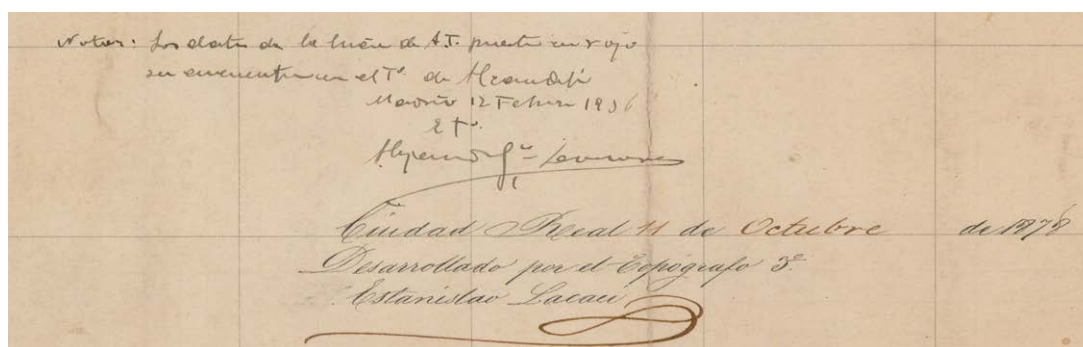 Notas: Los datos de la línea de A.T. puesta en rojo
se encuentran en el Tº. de
Madrid 12 Febrero 1936
El Tº.
Ciudad Real 11 de Octubre de 1878
Desarrollado por el Topógrafo 3º
Estanislao Lacaci